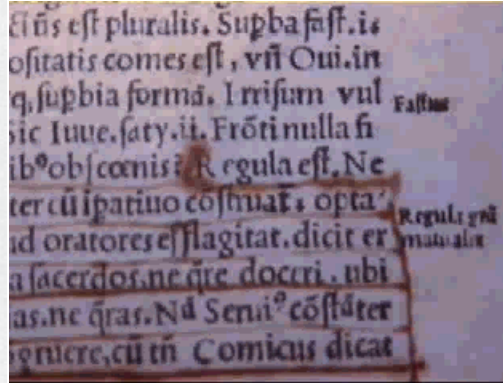 est pluralis. Supba fast. is
ositatis comes est, vñ Oui. in
q, supbia formā. Irrisum vul
Fastus
sic Iuue. saty. ii. Frōti nulla fi
obscœnis: Regula est. Ne
ter cū ipatiuo cōstruat, opta
Regula
ad oratores efflagitat. dicit er
a sacerdos. ne qre doceri. ubi
as. ne q̄ras. Nā Serui⁹ cōstāter
cū tñ Comicus dicat